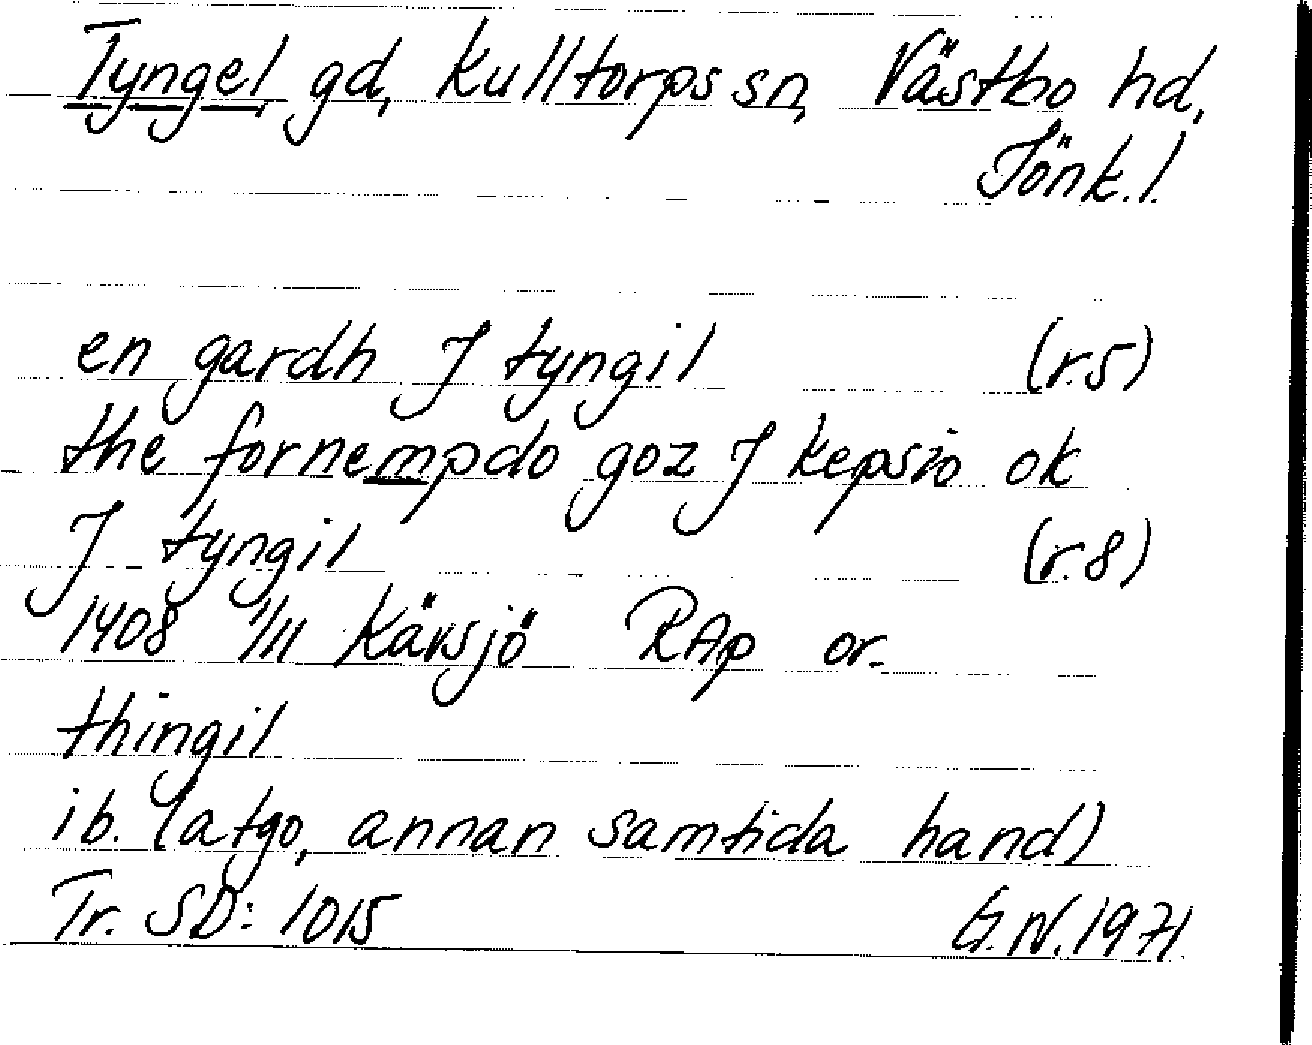 Tyngel, gd, Kulltorps sn, Västbo hd,
Jönk. l.
en gardh J tyngil (r. 5)
the fornempdo goz J kepsio ok
J tyngil (r. 8)
1408 1/III Kävsjö RAp or.
thingil
ib. (atgo, annan samtida hand)
Tr. SD: 1015 G. N. 1971